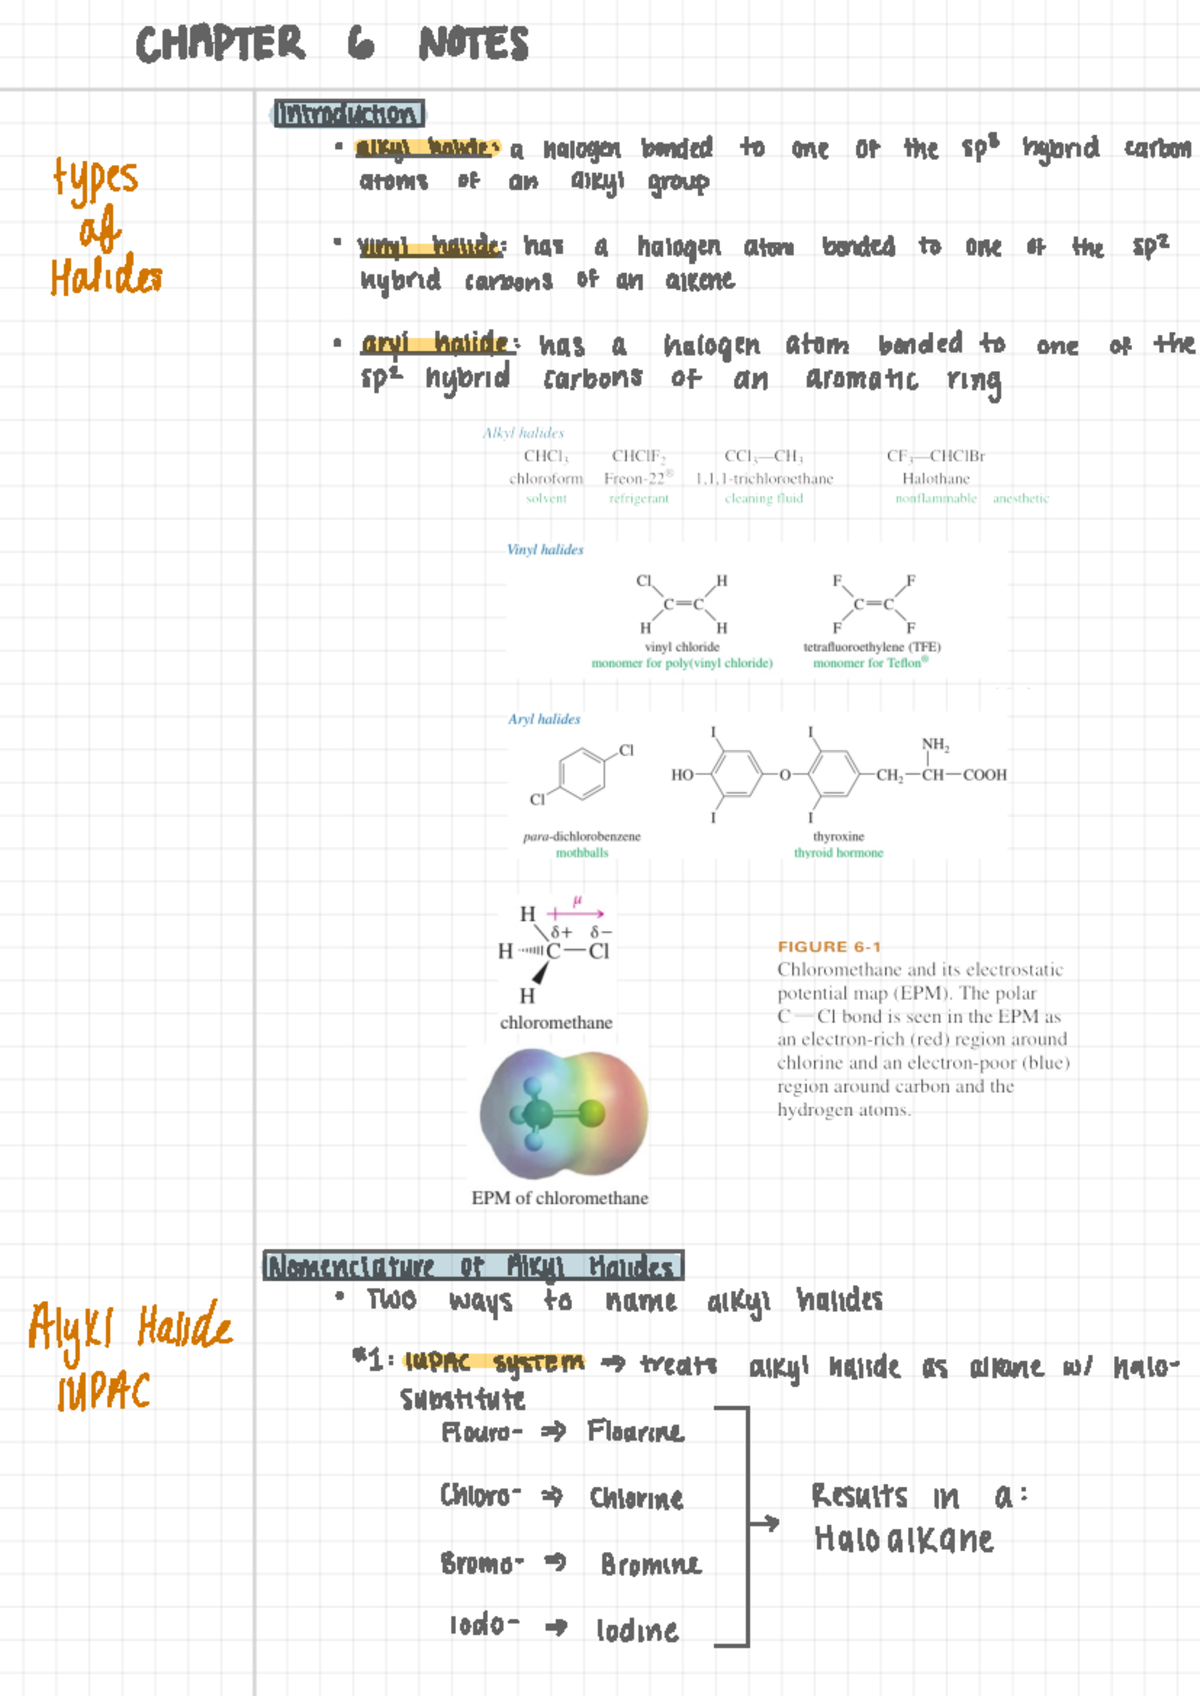 CHAPTER 6 NOTES
Introduction
types
of
Halides
• alkyl halide: a halogen bonded to one of the sp³ hybrid carbon
atoms of an alkyl group
• vinyl halide: has a halogen atom bonded to one of the sp²
hybrid carbons of an alkene
• aryl halide: has a halogen atom bonded to one of the
sp² hybrid carbons of an aromatic ring
Alkyl halides
CHCl₃ CHClF₂ CCl₃—CH₃ CF₃—CHClBr
chloroform Freon-22® 1,1,1-trichloroethane Halothane
solvent refrigerant cleaning fluid nonflammable anesthetic
Vinyl halides
Cl H F F
C=C C=C
H H F F
vinyl chloride tetrafluoroethylene (TFE)
monomer for poly(vinyl chloride) monomer for Teflon®
Aryl halides
Cl I I NH₂
HO O CH₂—CH—COOH
Cl I I
para-dichlorobenzene thyroxine
mothballs thyroid hormone
μ
H
δ+ δ−
H C—Cl
H
chloromethane
EPM of chloromethane
FIGURE 6-1
Chloromethane and its electrostatic
potential map (EPM). The polar
C—Cl bond is seen in the EPM as
an electron-rich (red) region around
chlorine and an electron-poor (blue)
region around carbon and the
hydrogen atoms.
Nomenclature of Alkyl Halides
• Two ways to name alkyl halides
Alykl Halide
IUPAC
#1: IUPAC system ⇒ treats alkyl halide as alkane w/ halo-
Substitute
Flouro- ⇒ Flourine
Chloro- ⇒ Chlorine
Bromo- ⇒ Bromine
Iodo- ⇒ Iodine
Results in a:
Haloalkane